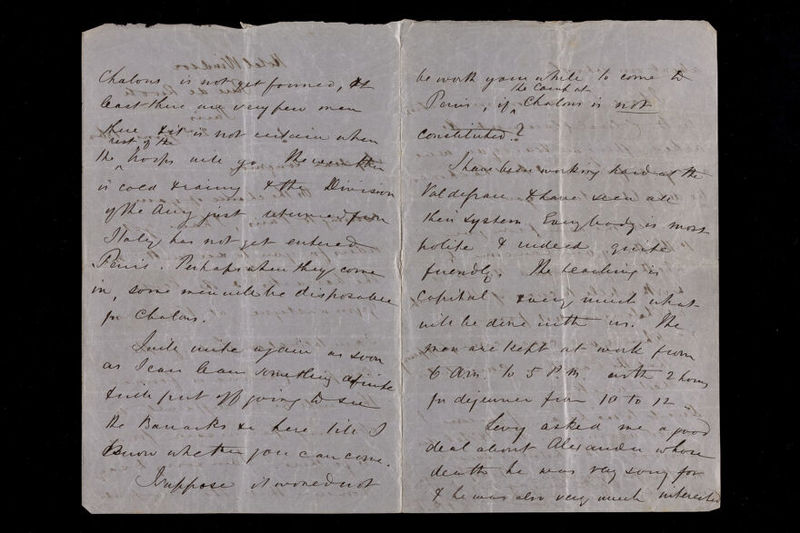 Chalons is not yet formed, at
least there are very few men
there & it is not certain when
rest of the
the troops will go. The weather
is cold & rainy & the Division
of the Army just returned from
Italy has not yet entered
Paris. Perhaps when they come
in, some men will be disposable
for Chalons.
I will write again as soon
as I can learn something definite
& will put off going to see
the Barracks &c here till I
know whether you can come.
I suppose it would not
be worth your while to come to
the Camp at
Paris, if Chalons is not
constituted?
I have been working hard at the
Val de grace & have seen all
their system. Everybody is most
polite & indeed quite
friendly. The teaching is
capital & very much what
will be done with us. The
men are kept at work from
6 A.m. to 5 P.m with 2 hours
for dejeuner from 10 to 12
Levy asked me a good
deal about Alexander whose
death he was very sorry for
& he was also very much interested